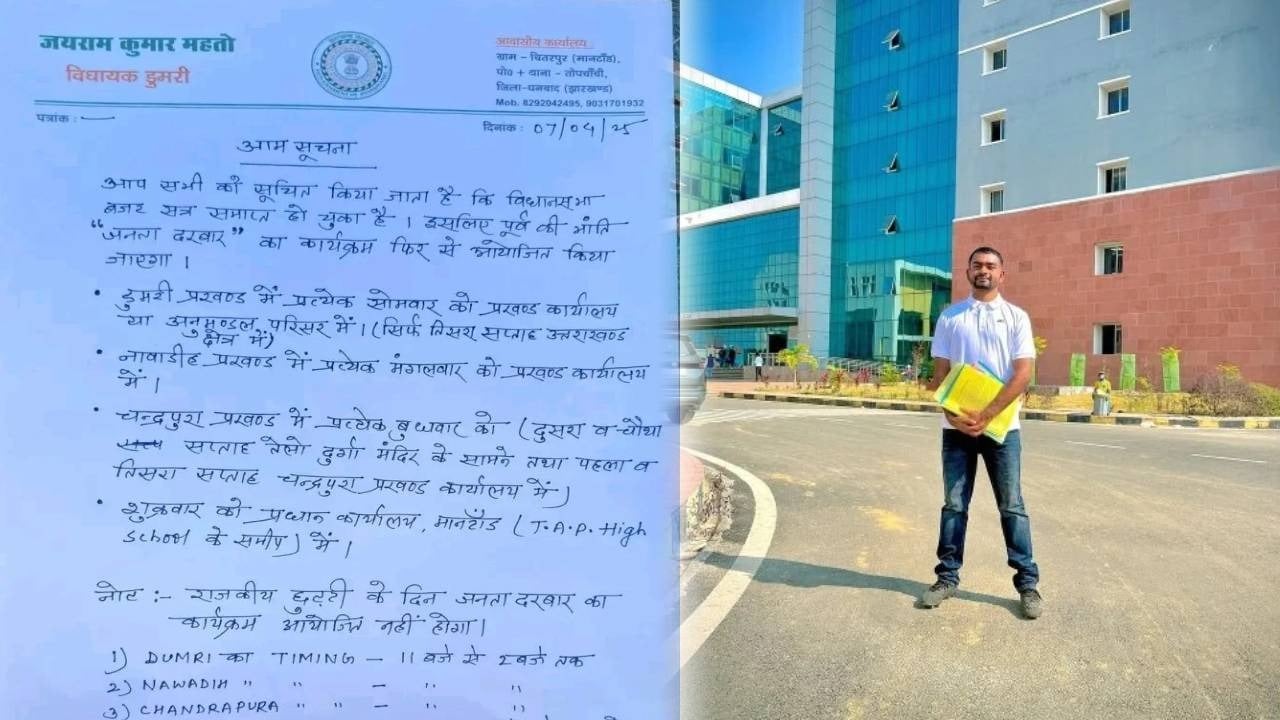 जयराम कुमार महतो
विधायक डुमरी
आवासीय कार्यालय
ग्राम - चितरपुर (मानटाँड),
पो० + थाना - तोपचाँची,
जिला-धनबाद (झारखण्ड)
Mob. 8292042495, 9031701932
पत्रांक :
दिनांक : 07/04/25
आम सूचना
आप सभी को सूचित किया जाता है कि विधानसभा
बजट सत्र समाप्त हो चुका है । इसलिए पूर्व की भाँति
"जनता दरबार" का कार्यक्रम फिर से आयोजित किया
जाएगा ।
• डुमरी प्रखण्ड में प्रत्येक सोमवार को प्रखण्ड कार्यालय
या अनुमण्डल परिसर में । (सिर्फ तिसरा सप्ताह उत्तराखण्ड
क्षेत्र में)
• नावाडीह प्रखण्ड में प्रत्येक मंगलवार को प्रखण्ड कार्यालय
में ।
• चन्द्रपुरा प्रखण्ड में प्रत्येक बुधवार को (दुसरा व चौथा
सप्ताह तेलो दुर्गा मंदिर के सामने तथा पहला व
तिसरा सप्ताह चन्द्रपुरा प्रखण्ड कार्यालय में)
• शुक्रवार को प्रधान कार्यालय, मानटाँड (T.A.P. High
School के समीप) में ।
नोट :- राजकीय छुट्टी के दिन जनता दरबार का
कार्यक्रम आयोजित नहीं होगा ।
1) DUMRI का TIMING - 11 बजे से 2 बजे तक
2) NAWADIH " " - " "
3) CHANDRAPURA " " - " "